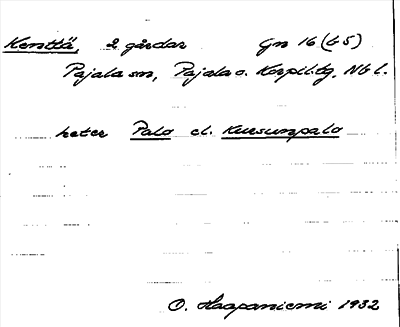 Kenttä, 2 gårdar Gn 16 (b5)
Pajala sn, Pajala o. Korpil. tg, Nb l.
heter Palo el. Kursunpalo
O. Haapaniemi 1932